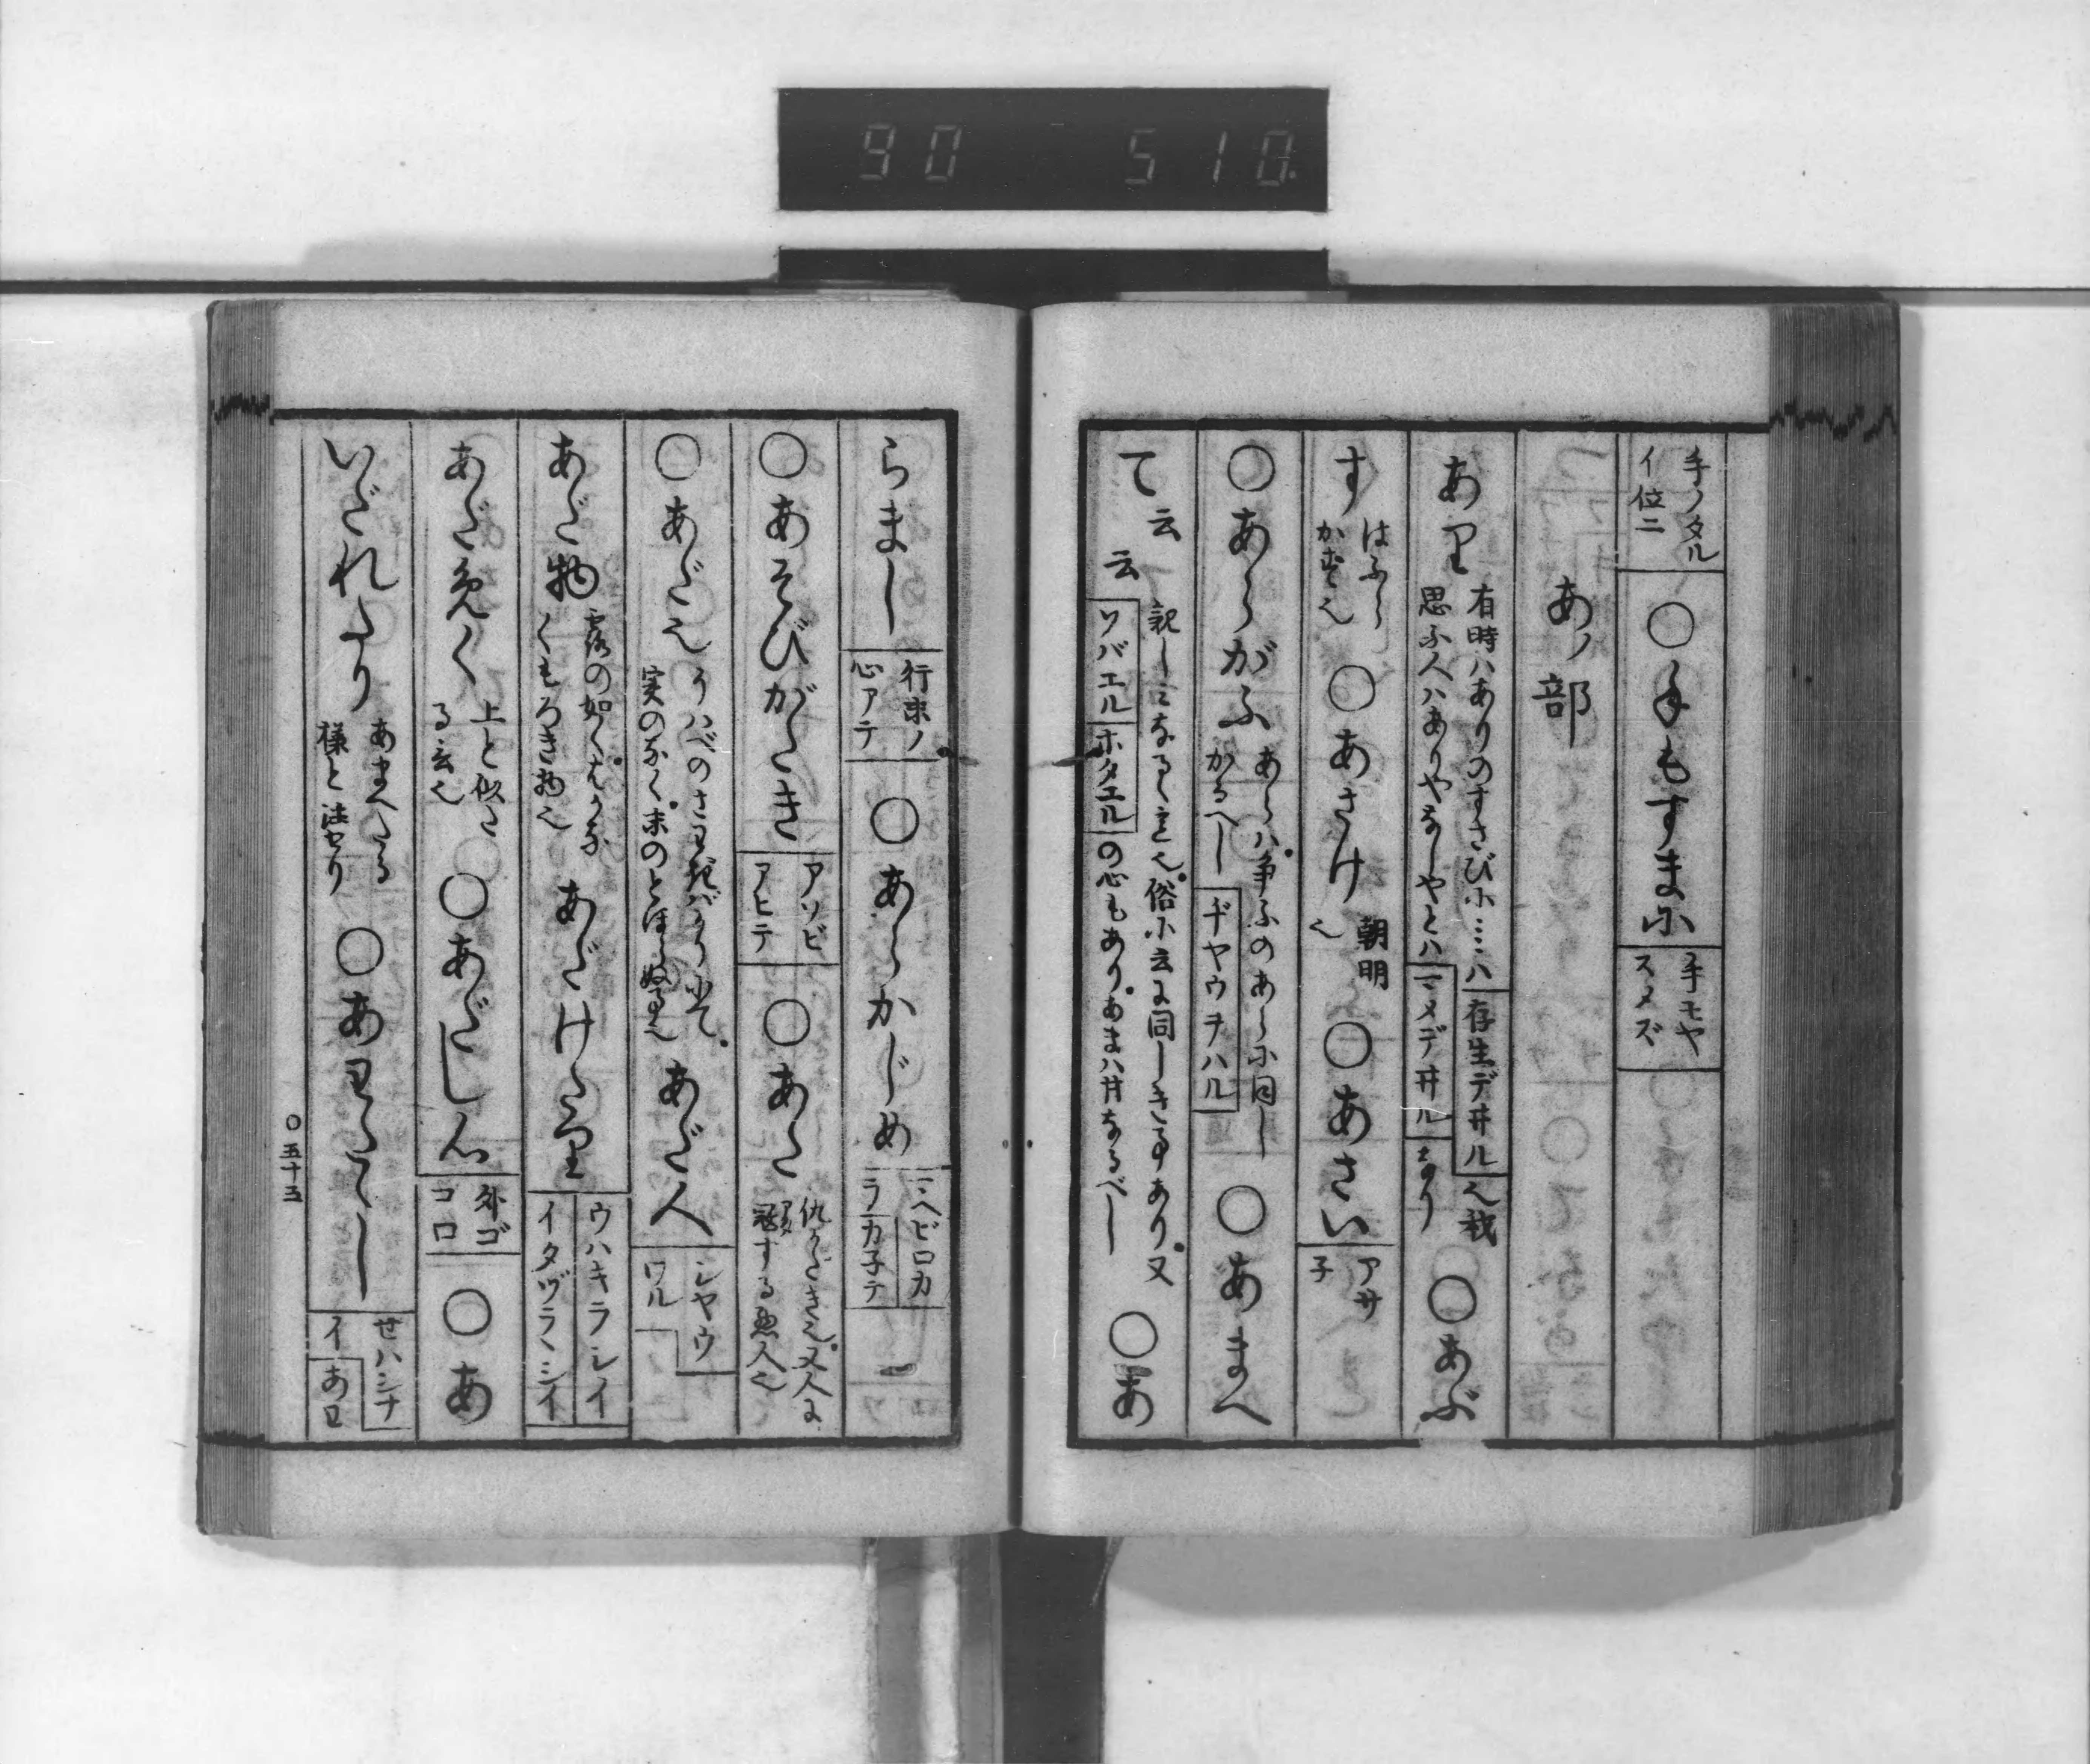 90 510
手ノタル
イ位ニ
○手もすまに
手モヤ
スメズ
あノ部
あり
有時ハありのすさびに……ハ
存生デ井ル
也我
思ふ人ハありやなしやとハ
マメデ井ル
なり
○あぶ
す
はふら
かす也
○あさけ
朝明
也
○あさい
アサ
子
○あらがふ
あらハ争ふのあらに同し
かるべし
ヂヤウヲハル
○あまへ
て云云
親しミなるゝ意也俗に云に同しき事あり又
ソバエル
ホタエル
の心もあり あまハ甘なるべし
○あ
らまし
行末ノ
心アテ
○あらかじめ
マヘビロカ
ラ
カ子テ
○あそびがたき
アソビ
アヒテ
○あた
仇がたき也又人に
冦する悪人也
○あだ也
うハべのさま花バかりにて
実のなく末のとほらぬ事也
あだ人
シヤウ
ワル
あだ物
露の如くはかな
くもろき物也
あだけたり
ウハキラシイ
イタヅラシイ
あだめく
上と似た
る言也
○あだし心
外ゴ
コロ
○あ
いだれたり
あまへたる
様と注せり
○あわたゝし
せハシナ
イ
あわ
○五十五